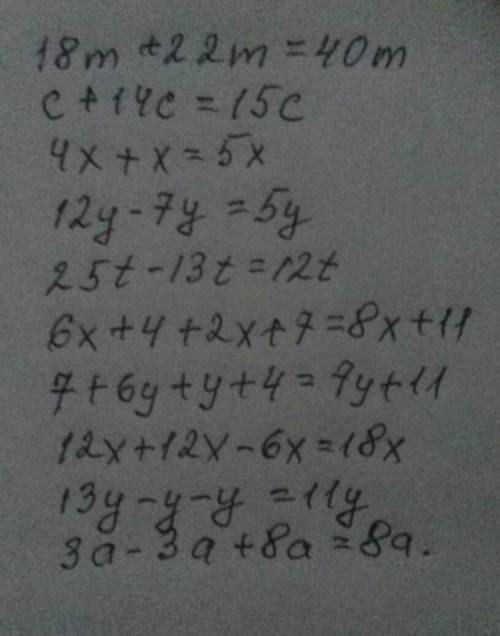 18m + 22m = 40m
c + 14c = 15c
4x + x = 5x
12y - 7y = 5y
25t - 13t = 12t
6x + 4 + 2x + 7 = 8x + 11
7 + 6y + y + 4 = 7y + 11
12x + 12x - 6x = 18x
13y - y - y = 11y
3a - 3a + 8a = 8a.